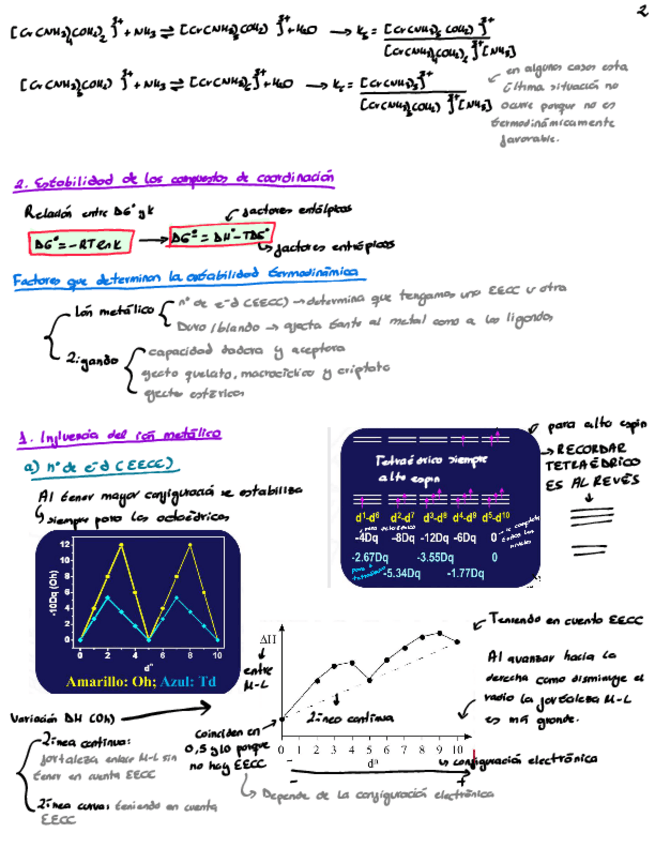 2
[Cr(NH₃)₄(OH₂)₂]³⁺ + NH₃ ⇌ [Cr(NH₃)₅(OH₂)]³⁺ + H₂O → K₅ = [Cr(NH₃)₅(OH₂)]³⁺ / [Cr(NH₃)₄(OH₂)₂]³⁺[NH₃]
[Cr(NH₃)₅(OH₂)]³⁺ + NH₃ ⇌ [Cr(NH₃)₆]³⁺ + H₂O → K₆ = [Cr(NH₃)₆]³⁺ / [Cr(NH₃)₅(OH₂)]³⁺[NH₃]
en algunos casos esta
última situación no
ocurre porque no es
termodinámicamente
favorable.
2. Estabilidad de los compuestos de coordinación
Relación entre ΔG° y K
factores entálpicos
ΔG° = -RT ln K → ΔG° = ΔH° - TΔS°
factores entrópicos
Factores que determinan la estabilidad termodinámica
Ión metálico
nº de e⁻ d (EECC) → determina que tengamos una EECC u otra
Duro/blando → afecta tanto al metal como a los ligandos
Ligando
capacidad dadora y aceptora
efecto quelato, macrocíclico y criptato
efectos estéricos
1. Influencia del ión metálico
a) nº de e⁻ d (EECC)
Al tener mayor configuración se estabiliza
siempre para los octaédricos
para alto espín
RECORDAR
TETRAÉDRICO
ES AL REVÉS
Tetraédrico siempre
alto espín
d¹-d⁶ d²-d⁷ d³-d⁸ d⁴-d⁹ d⁵-d¹⁰
para octaédrico
-4Dq -8Dq -12Dq -6Dq 0
se completan
todos los
niveles
-2.67Dq -3.55Dq 0
para el
tetraédrico
-5.34Dq -1.77Dq
-10Dq (Oh)
12
10
8
6
4
2
0
0 2 4 6 8 10
dⁿ
Amarillo: Oh; Azul: Td
ΔH
entre
M-L
Línea continua
0 1 2 3 4 5 6 7 8 9 10
dⁿ
configuración electrónica
- +
Depende de la configuración electrónica
Coinciden en
0, 5 y 10 porque
no hay EECC
Teniendo en cuenta EECC
Al avanzar hacia la
derecha como disminuye el
radio la fortaleza M-L
es más grande.
Variación ΔH (Oh)
Línea continua:
fortaleza enlace M-L sin
tener en cuenta EECC
Línea curva: teniendo en cuenta
EECC